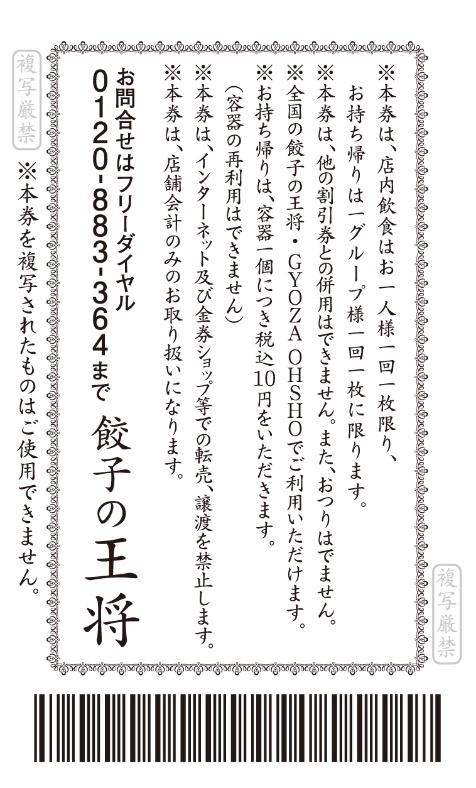 複写厳禁
※本券は、店内飲食はお一人様一回一枚限り、
お持ち帰りは一グループ様一回一枚に限ります。
※本券は、他の割引券との併用はできません。また、おつりはでません。
※全国の餃子の王将・GYOZA OHSHOでご利用いただけます。
※お持ち帰りは、容器一個につき税込10円をいただきます。
(容器の再利用はできません)
※本券は、インターネット及び金券ショップ等での転売、譲渡を禁止します。
※本券は、店舗会計のみのお取り扱いになります。
お問合せはフリーダイヤル
0120-883-364まで
餃子の王将
※本券を複写されたものはご使用できません。
複写厳禁